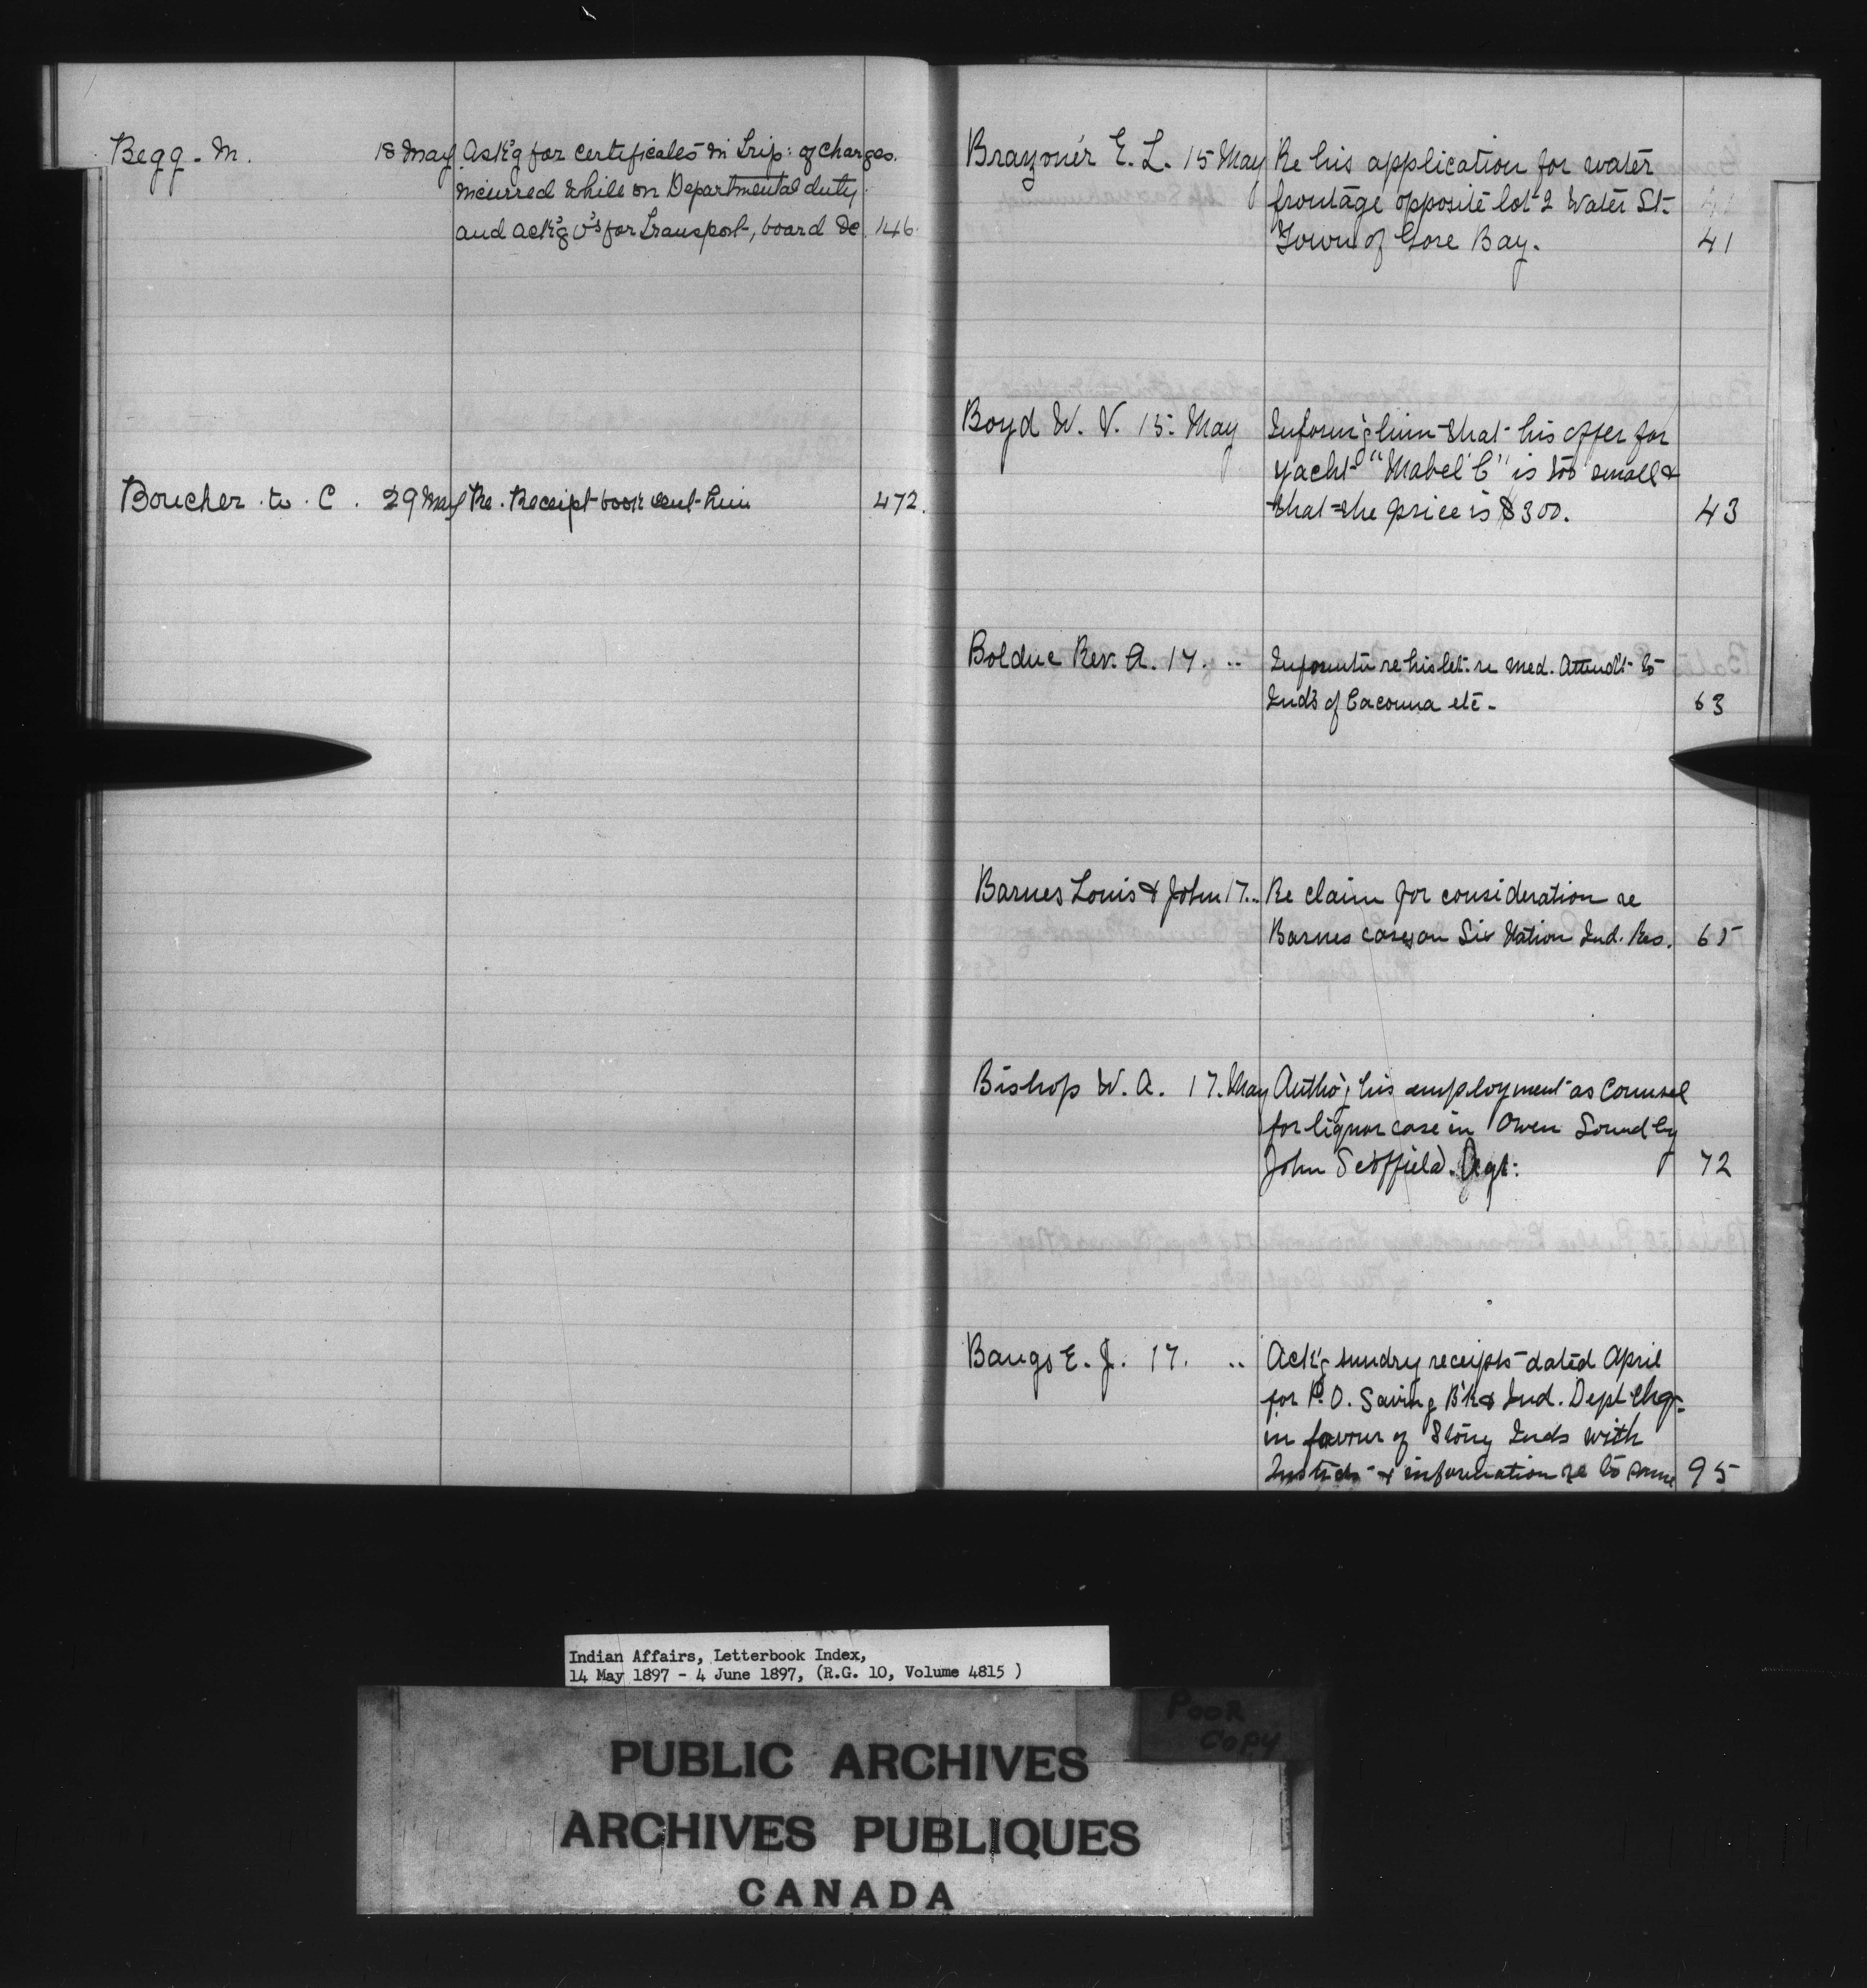 Begg. M. 18 May Ask'g for certificates in trip: of charges.
incurred while on Departmental duty
and ack'g v's for transport, board &c. 146
Boucher C. 29 May Re. Receipt book sent him 472.
E. L. 15 May Re his application for water
frontage opposite lot 2 Water St.
Town of Gore Bay. 41
Boyd W. V. 15: May Inform'g him that his offer for
yacht "Mabel C" is too small &
that the price is $300. 43
Bolduc Rev. A. 17. .. re his let. re Med. Attend't to
Ind's of Cacouna etc - 63
Barnes Louis & John 17.. Re claim for consideration re
Barnes cases on Six Nation Ind. Res. 65
Bishop W. A. 17. May Autho'g his employment as Counsel
for liquor case in Owen Sound by
John Scoffield. Agt: 72
Bangs E. J. 17. .. Ack'g sundry receipts dated April
for P.O. Saving B'k & Ind. Dept Chq-
in favour of Stony Inds with
& information re to same 95
Indian Affairs, Letterbook Index,
14 May 1897 - 4 June 1897, (R.G. 10, Volume 4815 )
POOR
COPY
PUBLIC ARCHIVES
ARCHIVES PUBLIQUES
CANADA